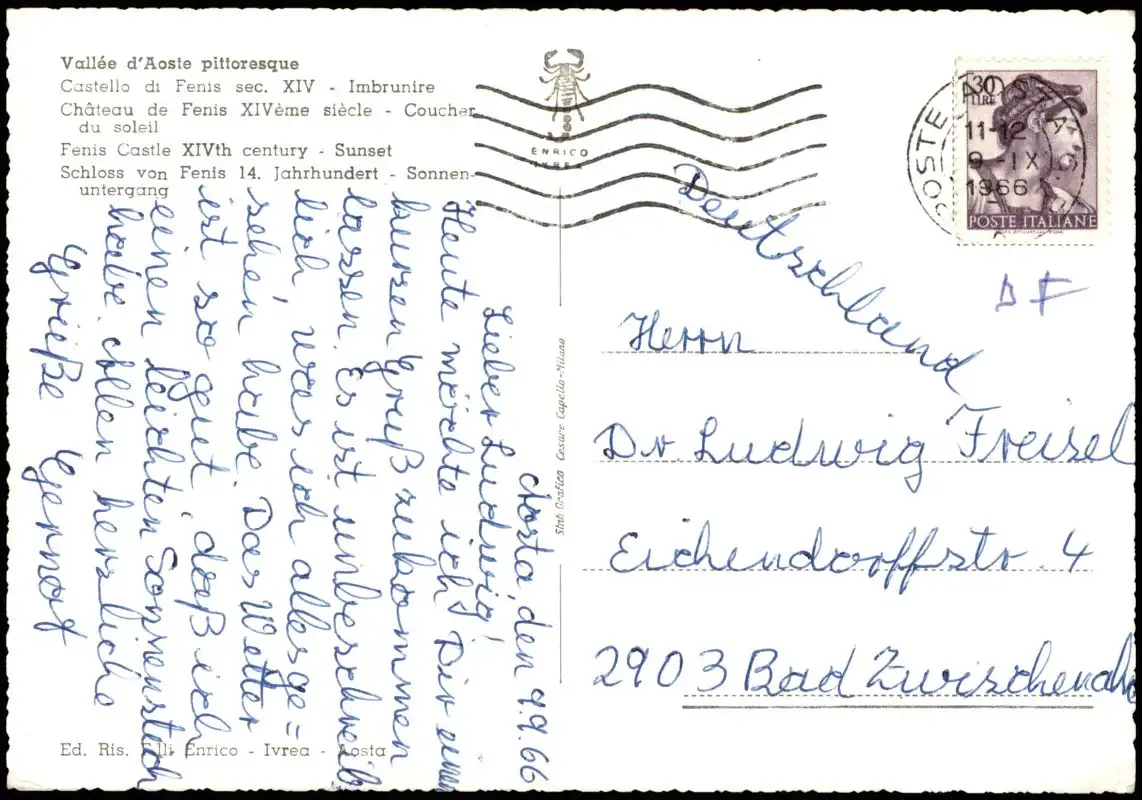 Vallée d'Aoste pittoresque
Castello di Fenis sec. XIV - Imbrunire
Château de Fenis XIVème siècle - Coucher
du soleil
Fenis Castle XIVth century - Sunset
Schloss von Fenis 14. Jahrhundert - Sonnen-
untergang
ENRICO
IVREA
POSTE AOSTA
11-12
9-IX
1966
30
LIRE
POSTE ITALIANE
Aosta, den 9.9.66
Lieber Ludwig!
Heute möchte ich Dir einen
kurzen Gruß zukommen
lassen. Es ist unbeschreib
lich was ich allesge=
sehen habe. Das Wetter
ist so gut, daß ich
einen leichten Sonnenstich
habe. Allen herzliche
Grüße Gernot
Stab Grafico Cesare Capello-Milano
Deutschland
Herrn
Dr. Ludwig Freisel
Eichendorffstr. 4
2903 Bad Zwischenahn
Ed. Ris. F.lli Enrico - Ivrea - Aosta